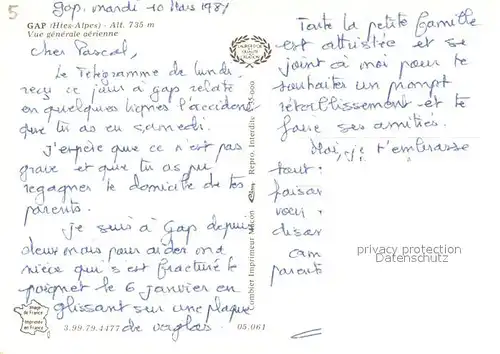 5
Gap, mardi 10 Mars 1981
GAP (Htes-Alpes) - Alt. 735 m
Vue générale aérienne
Cher Pascal,
Le Télégramme de lundi
reçu ce jour à gap relate
en quelques lignes l'accident
que tu as eu samedi.
J'espère que ce n'est pas
grave et que tu as pu
regagner le domicile de tes
parents.
Je suis à Gap depuis
deux mois pour aider ma
nièce qui s'est fracturé le
poignet le 6 janvier en
glissant sur une plaque
de verglas.
Image de France
Imprimée en France
3.99.79.4477
05.061
Combier Imprimeur Mâcon
Repro. Interdite
Toute la petite famille
est attristée et se
joint à moi pour te
souhaiter un prompt
rétablissement et te
faire ses amitiés.
Moi, je t'embrasse
tout
faisan
voeu
disan
cam
parents
privacy protection
Datenschutz